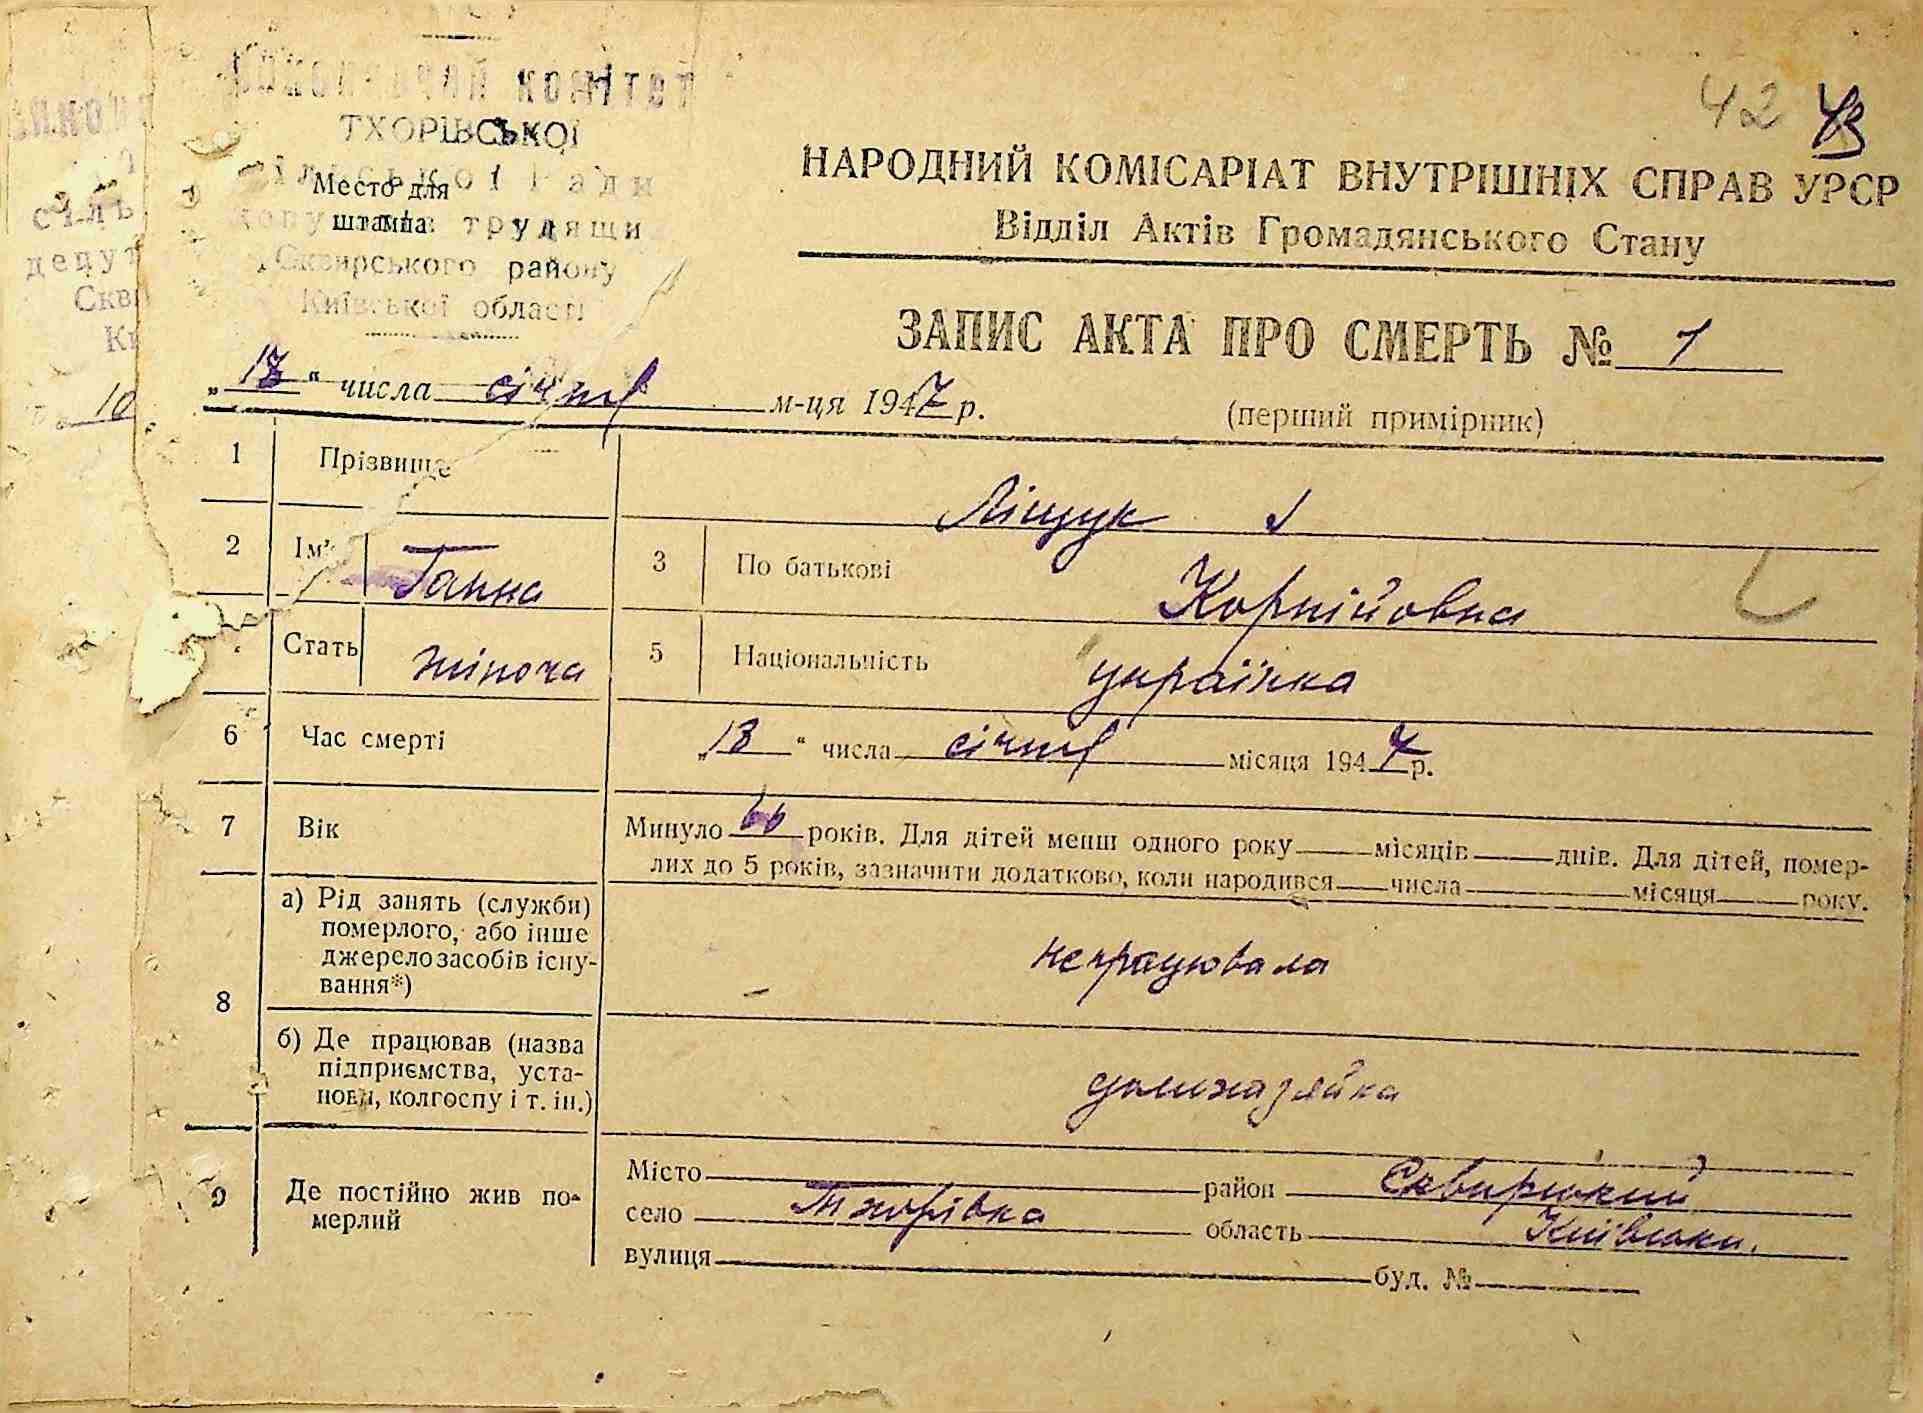 42 43
Виконавчий комітет
ТХОРІВСЬКОЇ
сільської Ради
Место для
штампа
депутатів трудящих
Сквирського району
Київської області
НАРОДНИЙ КОМІСАРІАТ ВНУТРІШНІХ СПРАВ УРСР
Відділ Актів Громадянського Стану
ЗАПИС АКТА ПРО СМЕРТЬ № 1
„ 18 “ числа січня м-ця 1947 р.
(перший примірник)
1 Прізвище Ліщук
2 Ім'я Ганна 3 По батькові Корнійовна
Стать жіноча 5 Національність українка
6 Час смерті „ 13 “ числа січня місяця 1947 р.
7 Вік Минуло 66 років. Для дітей менш одного року місяців днів. Для дітей, помер-
лих до 5 років, зазначити додатково, коли народився числа місяця року.
8 а) Рід занять (служби)
померлого, або інше
джерело засобів існу-
вання*)
непрацювала
б) Де працював (назва
підприємства, уста-
нови, колгоспу і т. ін.)
домохазяйка
9 Де постійно жив по-
мерлий
Місто район Сквирський
село Тхорівка область Київська.
вулиця буд. №